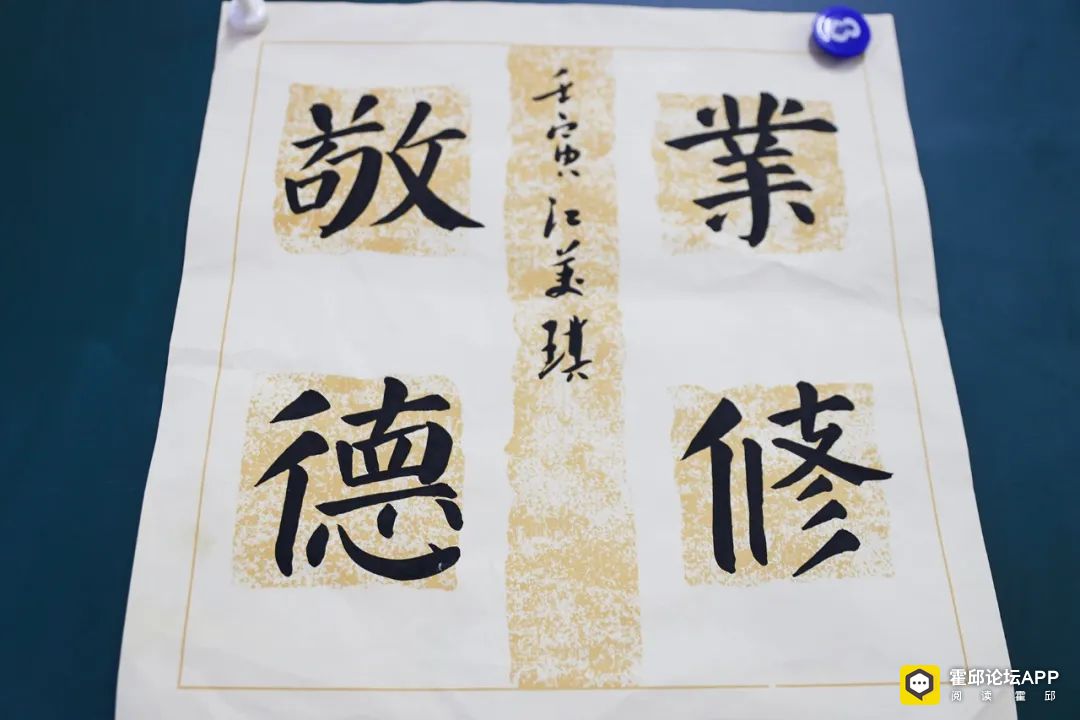 敬業
德修
壬寅江美琪
霍邱论坛APP
阅读霍邱